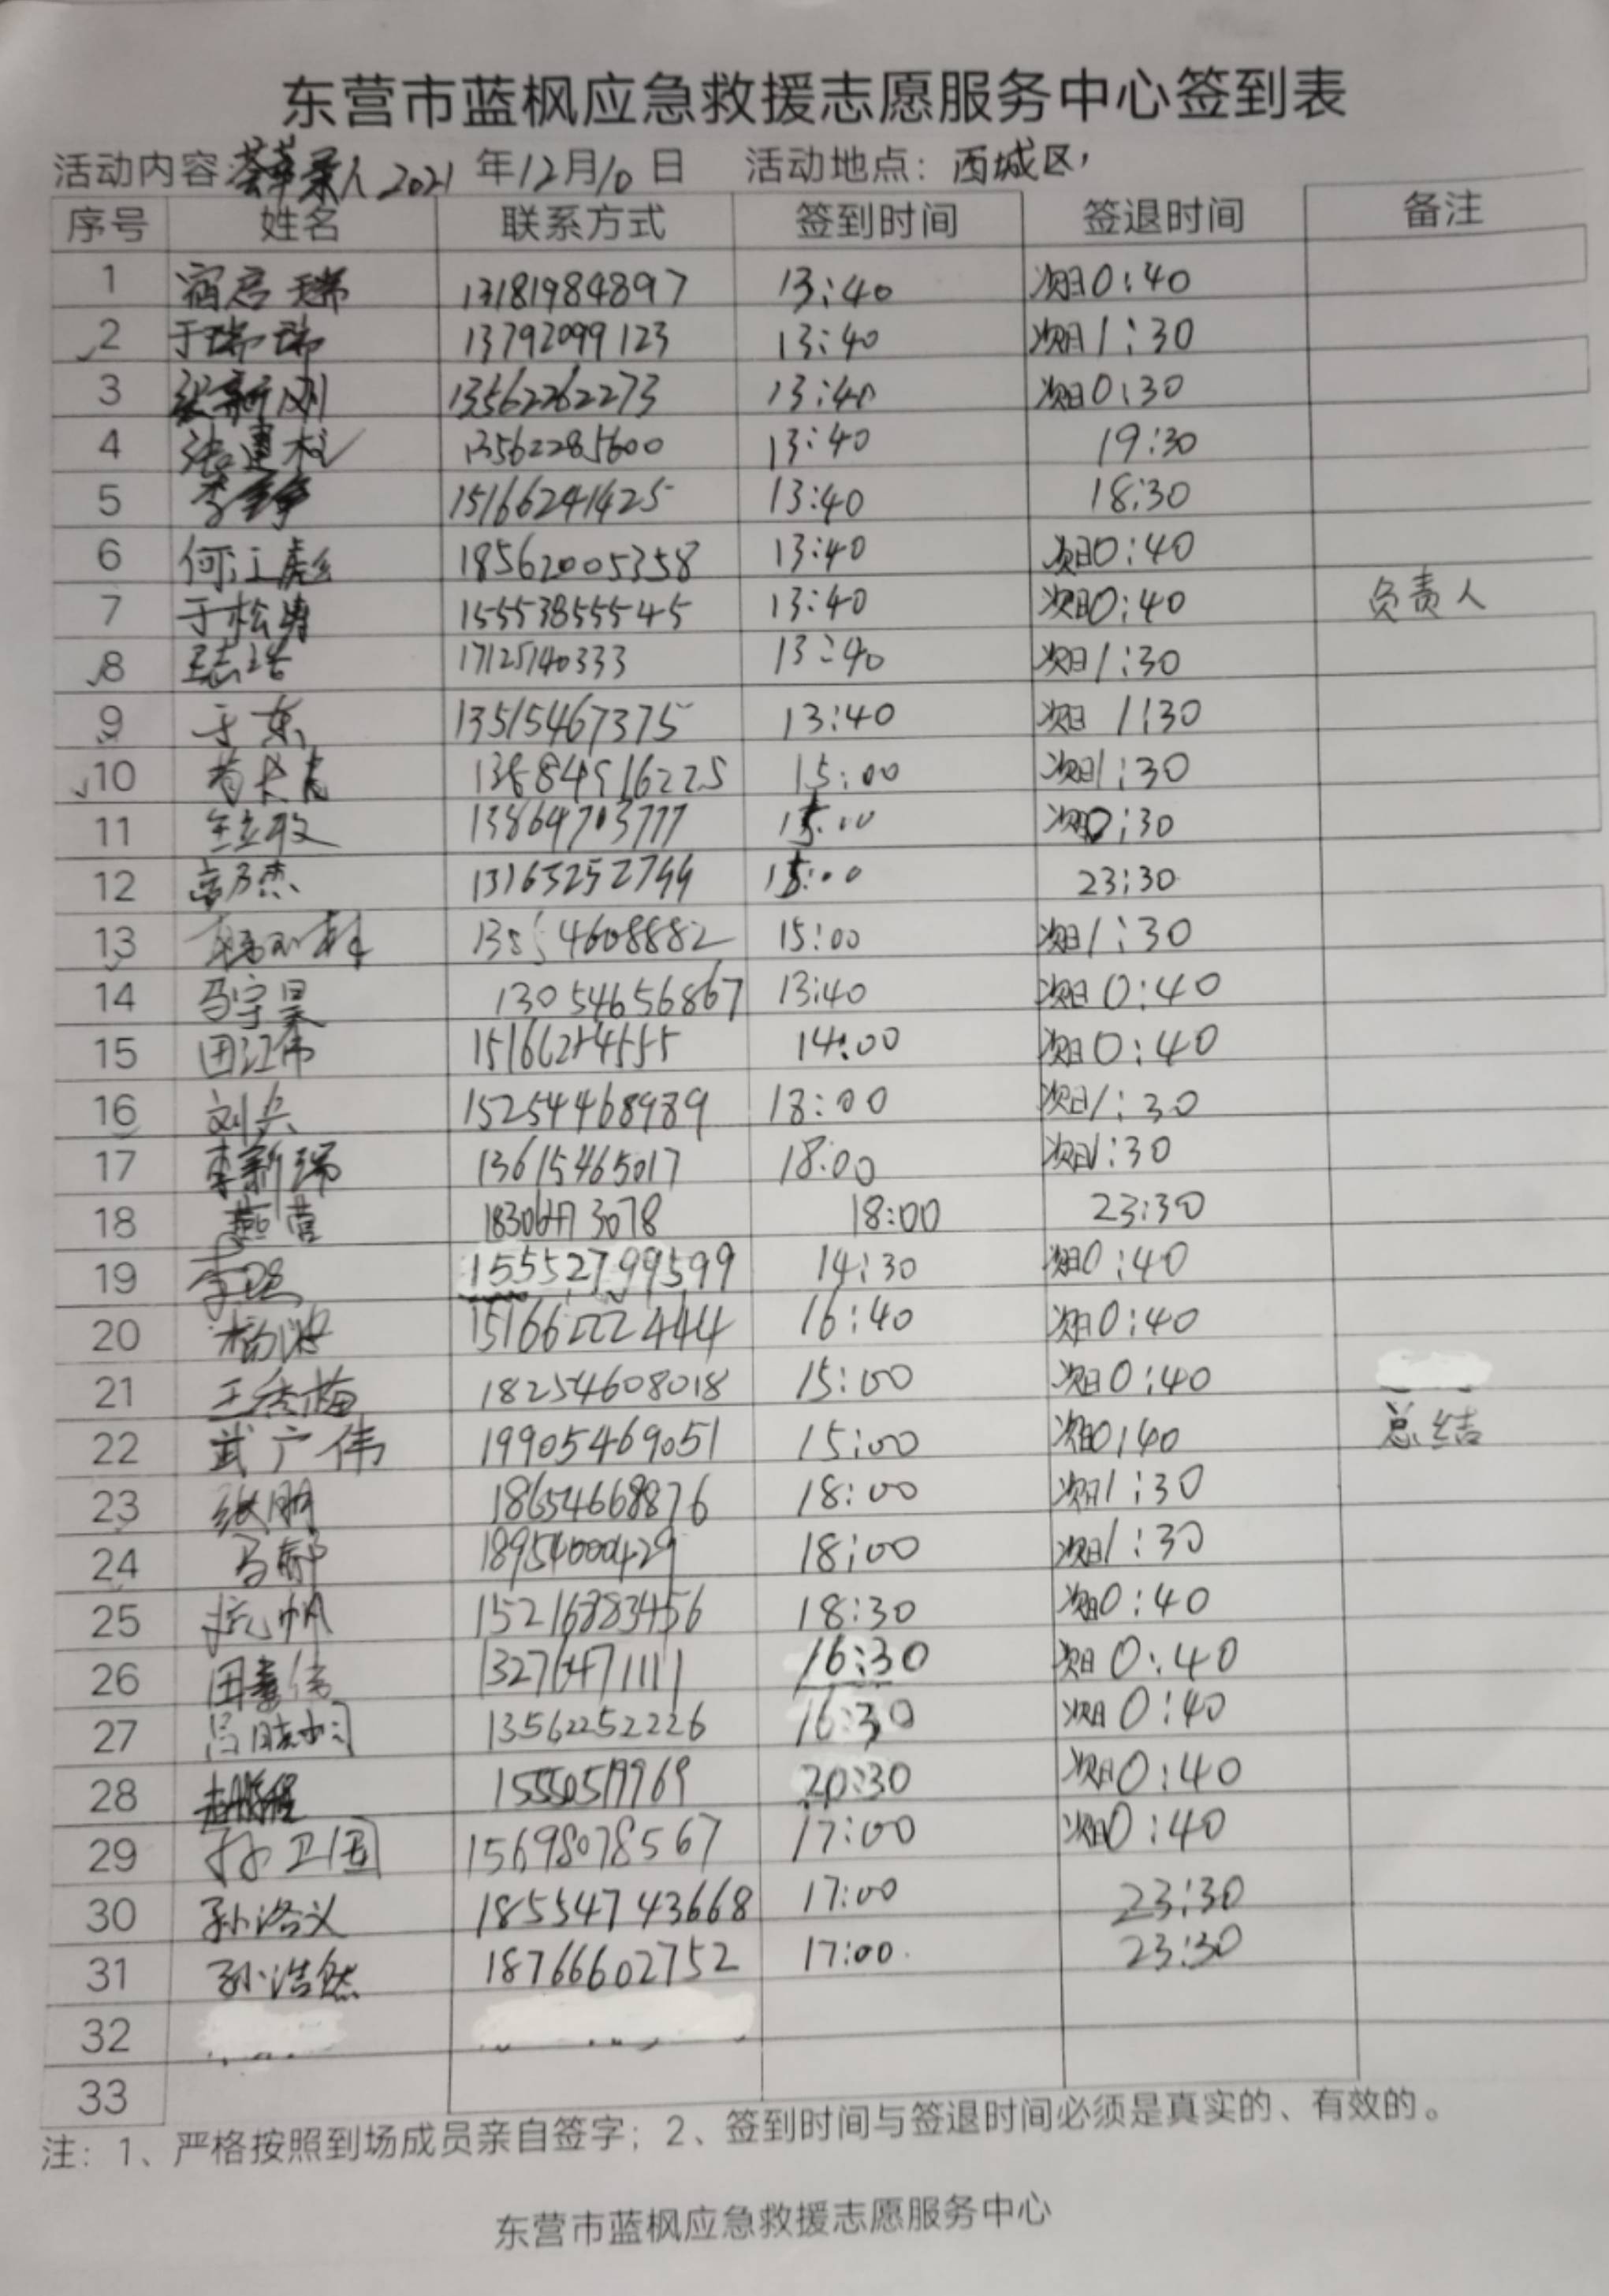 东营市蓝枫应急救援志愿服务中心签到表
活动内容: 人 2021 年12月10日 活动地点: 西城区,
序号 姓名 联系方式 签到时间 签退时间 备注
1 宿启瑞 13181984897 13:40 次日0:40
2 于瑞瑞 13792099123 13:40 次日1:30
3 新刚 13562262273 13:40 次日0:30
4 张建 13562285600 13:40 19:30
5 李 15166241425 13:40 18:30
6 何江彪 18562005358 13:40 次日0:40
7 于松涛 15553855545 13:40 次日0:40 负责人
8 王志浩 17125140333 13:40 次日1:30
9 于东 13515467375 13:40 次日1:30
10 15:00 次日1:30
11 13864703777 15:00 次日0:30
12 高乃杰 15:00 23:30
13 15:00 次日1:30
14 马宇昊 13054656867 13:40 次日0:40
15 田江伟 14:00 次日0:40
16 刘兵 15254468989 18:00 次日1:30
17 李新瑞 13615465017 18:00 次日1:30
18 燕营 18:00 23:30
19 李 14:30 次日0:40
20 杨波 15166222444 16:40 次日0:40
21 王秀梅 18254608018 15:00 次日0:40
22 武广伟 19905469051 15:00 次日0:40 总结
23 张朋 18654668876 18:00 次日1:30
24 马 18954000429 18:00 次日1:30
25 15216883456 18:30 次日0:40
26 田 伟 13276471111 16:30 次日0:40
27 吕 13562252226 16:30 次日0:40
28 赵 程 15550519969 20:30 次日0:40
29 孙卫国 15698078567 17:00 次日0:40
30 孙洛义 18554743668 17:00 23:30
31 孙浩然 18766602752 17:00 23:30
32
33
注: 1、严格按照到场成员亲自签字; 2、签到时间与签退时间必须是真实的、有效的。
东营市蓝枫应急救援志愿服务中心